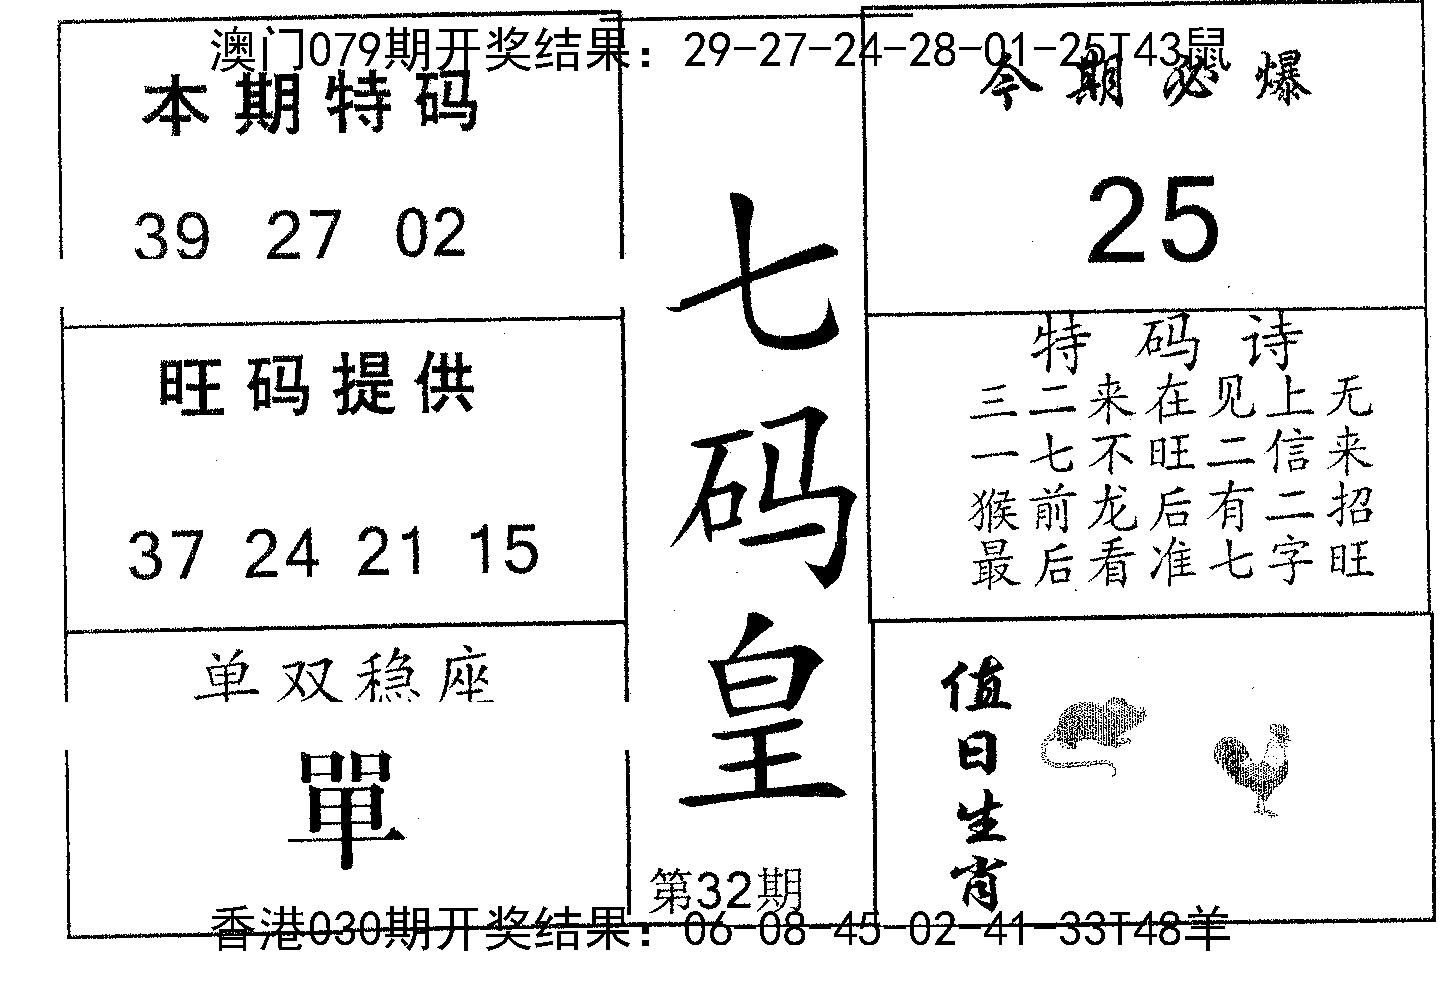 澳门079期开奖结果：29-27-24-28-01-25T43鼠
本期特码
39 27 02
旺码提供
37 24 21 15
单双稳座
單
七码皇
第32期
今期必爆
25
特码诗
三二来在见上无
一七不旺二信来
猴前龙后有二招
最后看准七字旺
值日生肖
香港030期开奖结果：06-08-45-02-41-33T48羊